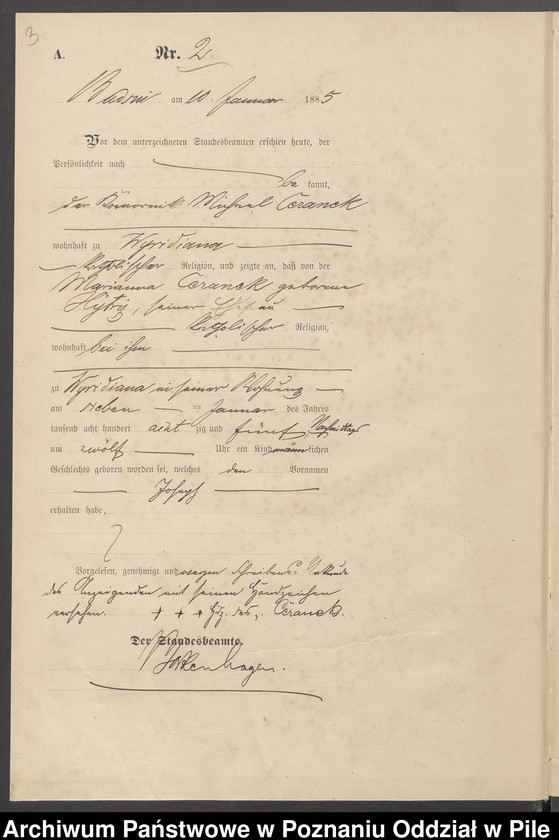 3
A. Nr. 2.
am 10. Januar 1885
Vor dem unterzeichneten Standesbeamten erschien heute, der
Persönlichkeit nach
be kannt,
der Komornik Michael Ceranek
wohnhaft zu Wyridiana
katholischer Religion, und zeigte an, daß von der
Marianna Ceranek geborene
seiner Ehefrau
katholischer Religion,
wohnhaft bei ihm
zu Wyridiana in seiner Wohnung
am sieben ten Januar des Jahres
tausend acht hundert acht zig und fünf Nachmittags
um zwölf Uhr ein Kind männlichen
Geschlechts geboren worden sei, welches den Vornamen
Joseph
erhalten habe.
Vorgelesen, genehmigt und wegen Schreibens Unkunde
des Anzeigenden mit seinen Handzeichen
versehen. + + + Hdz. des p. Ceranek.
Der Standesbeamte.